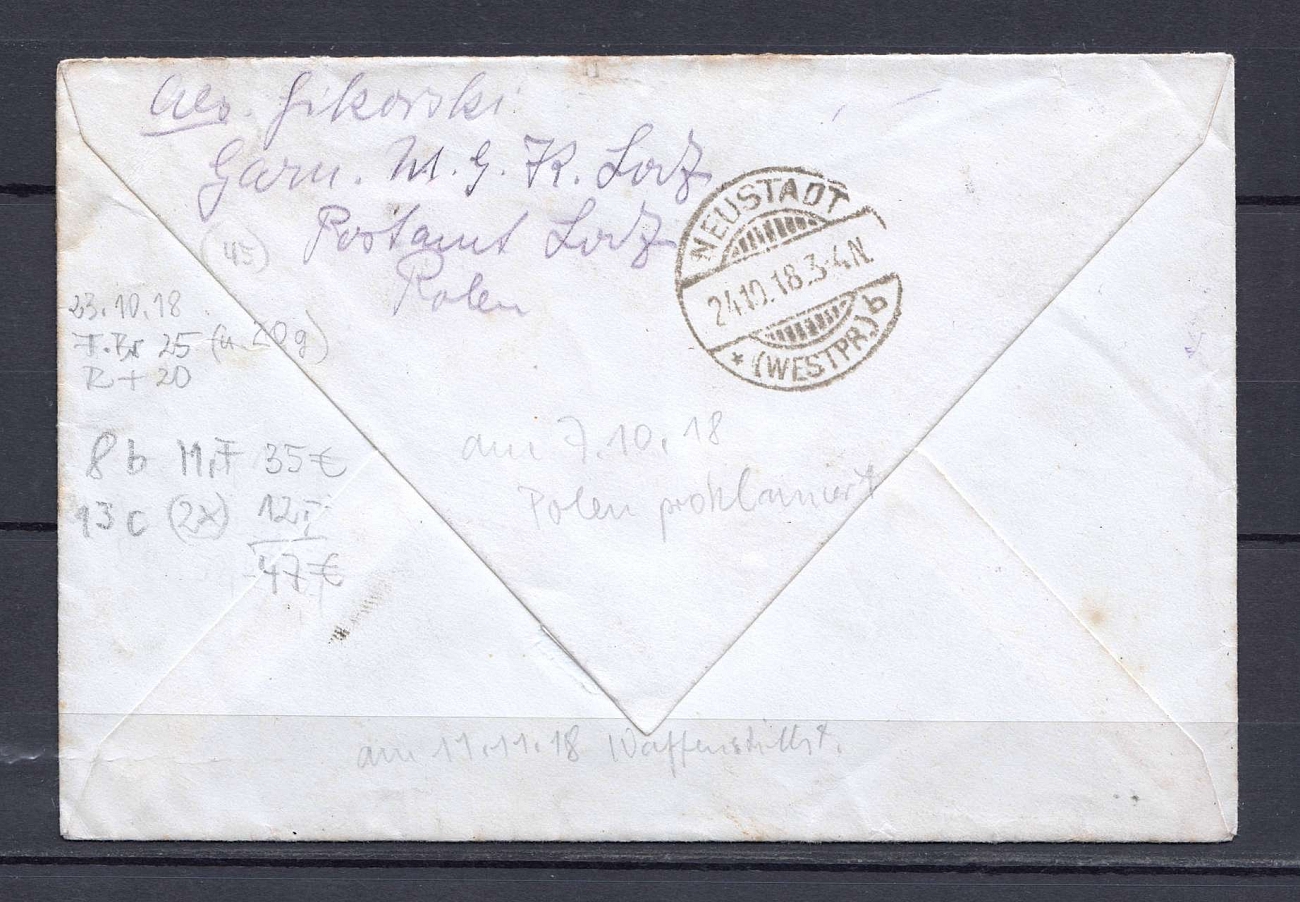 Abs. Gikorski
Garn. M. G. K. Lodz
Postamt Lodz
Polen
NEUSTADT
24.10.18.3-4N.
* (WESTPR.) b
(45)
23.10.18
F.Br 25 (ü. 20g)
R + 20
8 b MiF 35€
13 c (2x) 12,-
47€
am 7.10.18
Polen proklamiert
am 11.11.18 Waffenstillst.